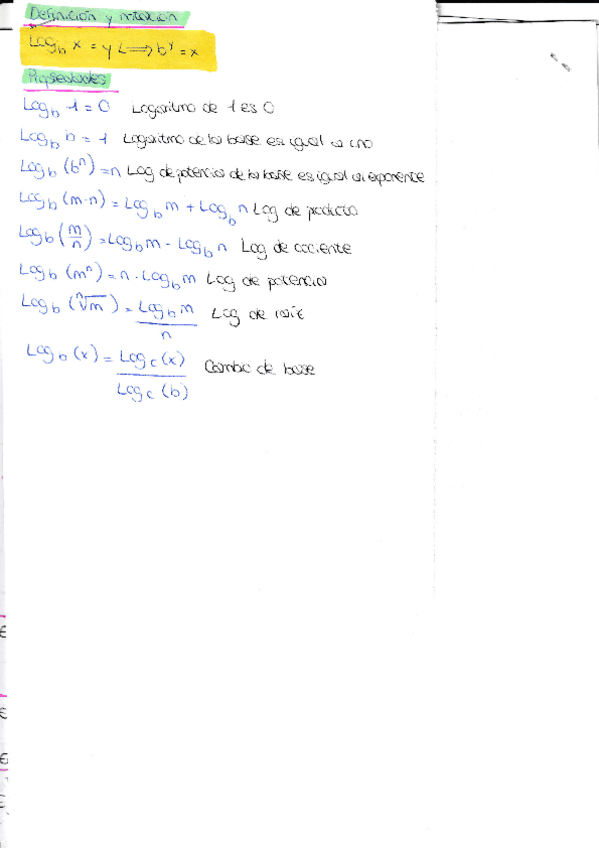 Definición y notación
Log_b x = y <=> b^y = x
Propiedades
Log_b 1 = 0 Logaritmo de 1 es 0
Log_b b = 1 Logaritmo de la base es igual a uno
Log_b (b^n) = n Log de potencia de la base es igual al exponente
Log_b (m·n) = Log_b m + Log_b n Log de producto
Log_b (m/n) = Log_b m - Log_b n Log de cociente
Log_b (m^n) = n · Log_b m Log de potencia
Log_b (ⁿ√m) = Log_b m / n Log de raíz
Log_b (x) = Log_c (x) / Log_c (b) Cambio de base